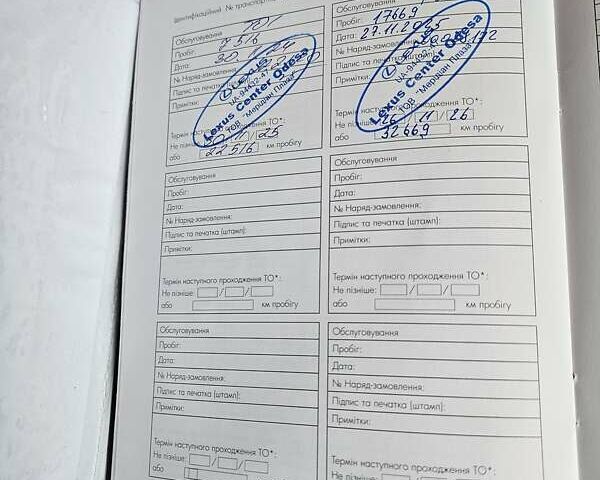 Ідентифікаційний № транспортно
Обслуговування ТО1
Пробіг: 7516
Дата: 30.11.24
№ Наряд-замовлення:
Підпис та печатка (штамп):
Примітки:
LEXUS
Lexus Center Odesa
ТОВ "Мерідіан Плаза"
Термін наступного проходження ТО*:
Не пізніше: /11/25
або 22516 км пробігу
Обслуговування
Пробіг: 17669
Дата: 27.11.2025
№ Наряд-замовлення:
Підпис та печатка
Примітки:
LEXUS
Lexus Center Odesa
ТОВ "Мерідіан Плаза"
Термін наступного проходження ТО*:
Не пізніше: 26/11/26
або 32669 км пробігу
Обслуговування
Пробіг:
Дата:
№ Наряд-замовлення:
Підпис та печатка (штамп):
Примітки:
Термін наступного проходження ТО*:
Не пізніше: / /
або км пробігу
Обслуговування
Пробіг:
Дата:
№ Наряд-замовлення:
Підпис та печатка (штамп):
Примітки:
Термін наступного проходження ТО*:
Не пізніше: / /
або км пробігу
Обслуговування
Пробіг:
Дата:
№ Наряд-замовлення:
Підпис та печатка (штамп):
Примітки:
Термін наступного проходження ТО*:
Не пізніше: / /
або км пробігу
Обслуговування
Пробіг:
Дата:
№ Наряд-замовлення:
Підпис та печатка (штамп):
Примітки:
Термін наступного проходження ТО*:
Не пізніше: / /
або км пробігу